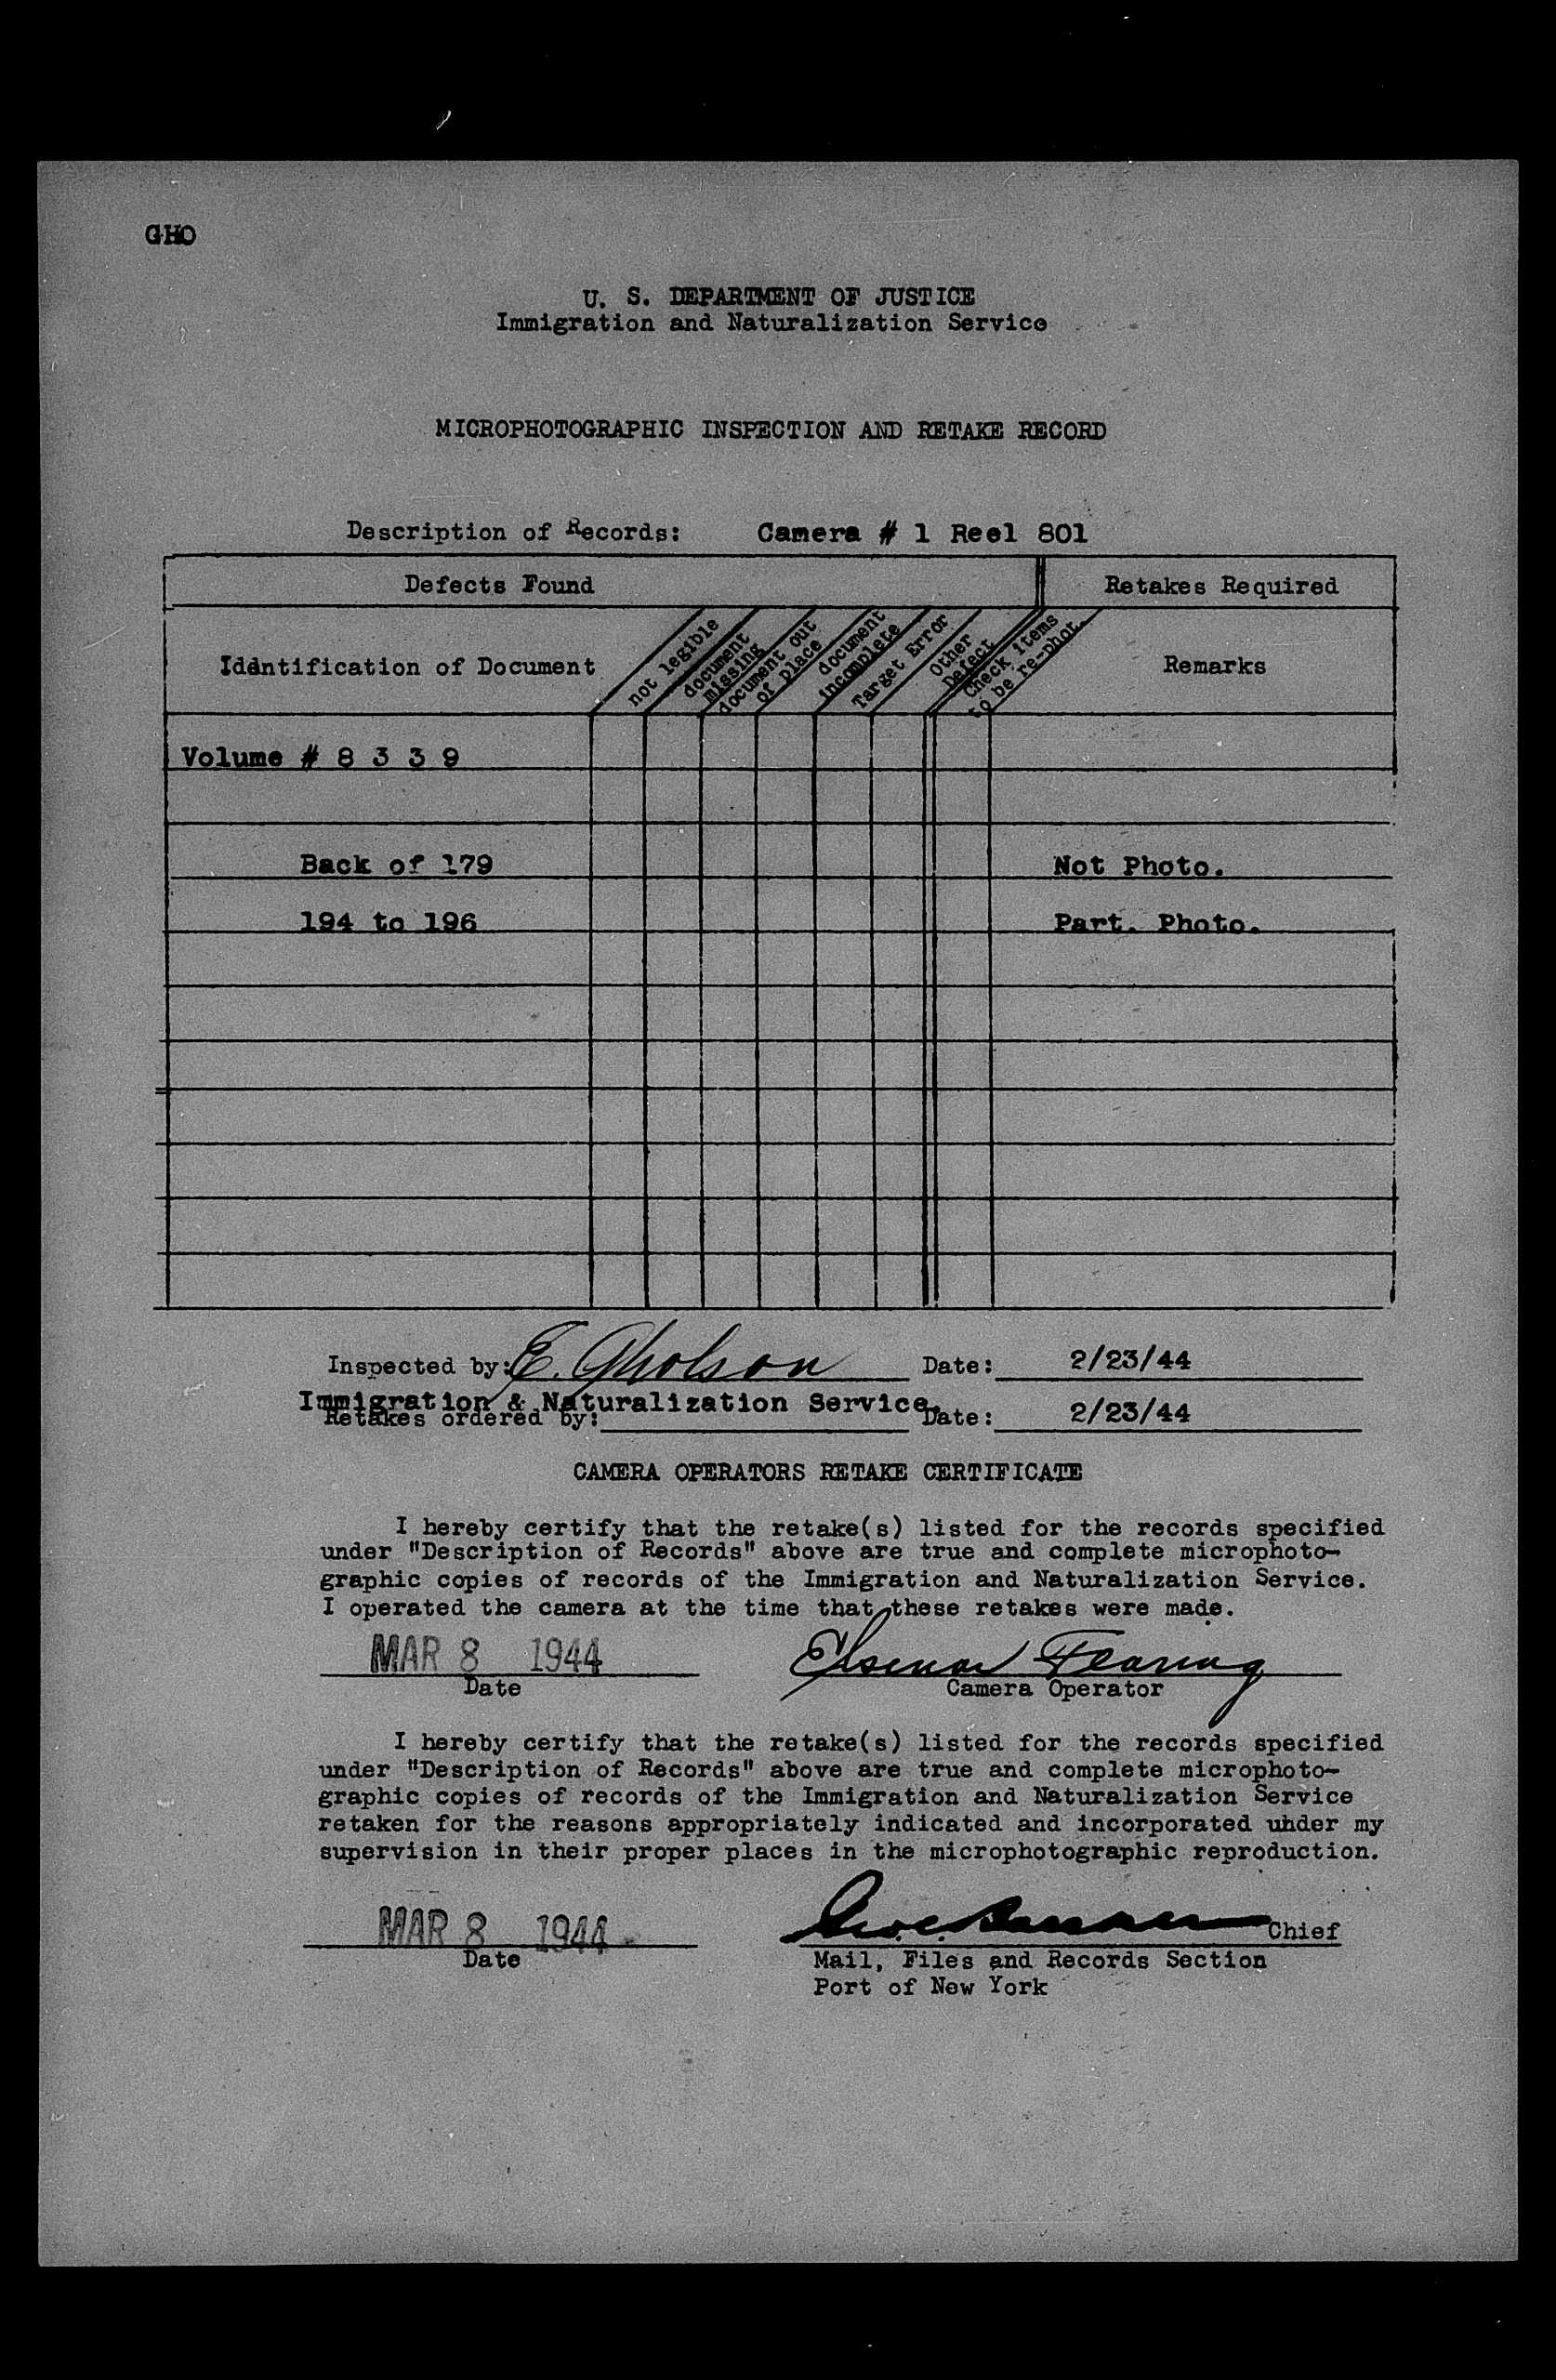 GHO
U. S. DEPARTMENT OF JUSTICE
Immigration and Naturalization Service
MICROPHOTOGRAPHIC INSPECTION AND RETAKE RECORD
Description of Records: Camera # 1 Reel 801
Defects Found Retakes Required
Identification of Document
not legible
document
missing
document out
of place
document
incomplete
Target Error
Other
Defect
Check items
to be re-phot.
Remarks
Volume # 8 3 3 9
Back of 179 Not Photo.
194 to 196 Part. Photo.
Inspected by: E. Gholson Date: 2/23/44
Immigration & Naturalization Service.
Retakes ordered by: Date: 2/23/44
CAMERA OPERATORS RETAKE CERTIFICATE
I hereby certify that the retake(s) listed for the records specified
under "Description of Records" above are true and complete microphoto-
graphic copies of records of the Immigration and Naturalization Service.
I operated the camera at the time that these retakes were made.
MAR 8 1944 Fearing
Date Camera Operator
I hereby certify that the retake(s) listed for the records specified
under "Description of Records" above are true and complete microphoto-
graphic copies of records of the Immigration and Naturalization Service
retaken for the reasons appropriately indicated and incorporated under my
supervision in their proper places in the microphotographic reproduction.
MAR 8 1944 Chief
Date Mail, Files and Records Section
Port of New York